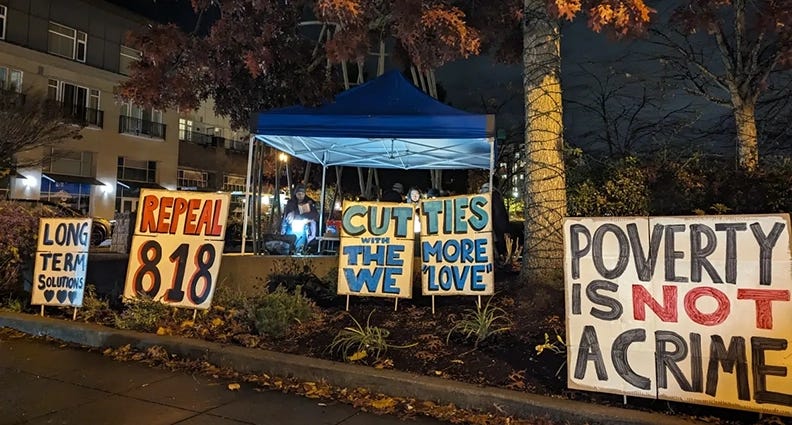 LONG
TERM
SOLUTIONS
REPEAL
818
CUT
WITH
THE
WE
TIES
MORE
"LOVE"
POVERTY
IS NOT
A CRIME